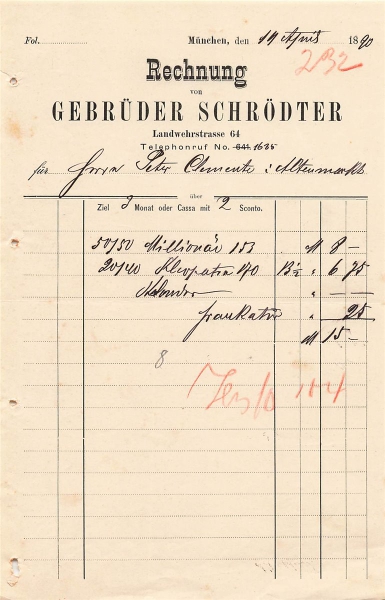 Fol. München, den 14 April 1890
232
Rechnung
von
GEBRÜDER SCHRÖDTER
Landwehrstrasse 64
Telephonruf No. 641. 1685
für Herrn Peter Clemente Altenmarkt
über
Ziel 3 Monat oder Cassa mit 2 Sconto.
50/50 Millionär 153 M 8 —
20/40 Kleopatra 170 13½ " 6 75
" —
" 25
M 15 —
8